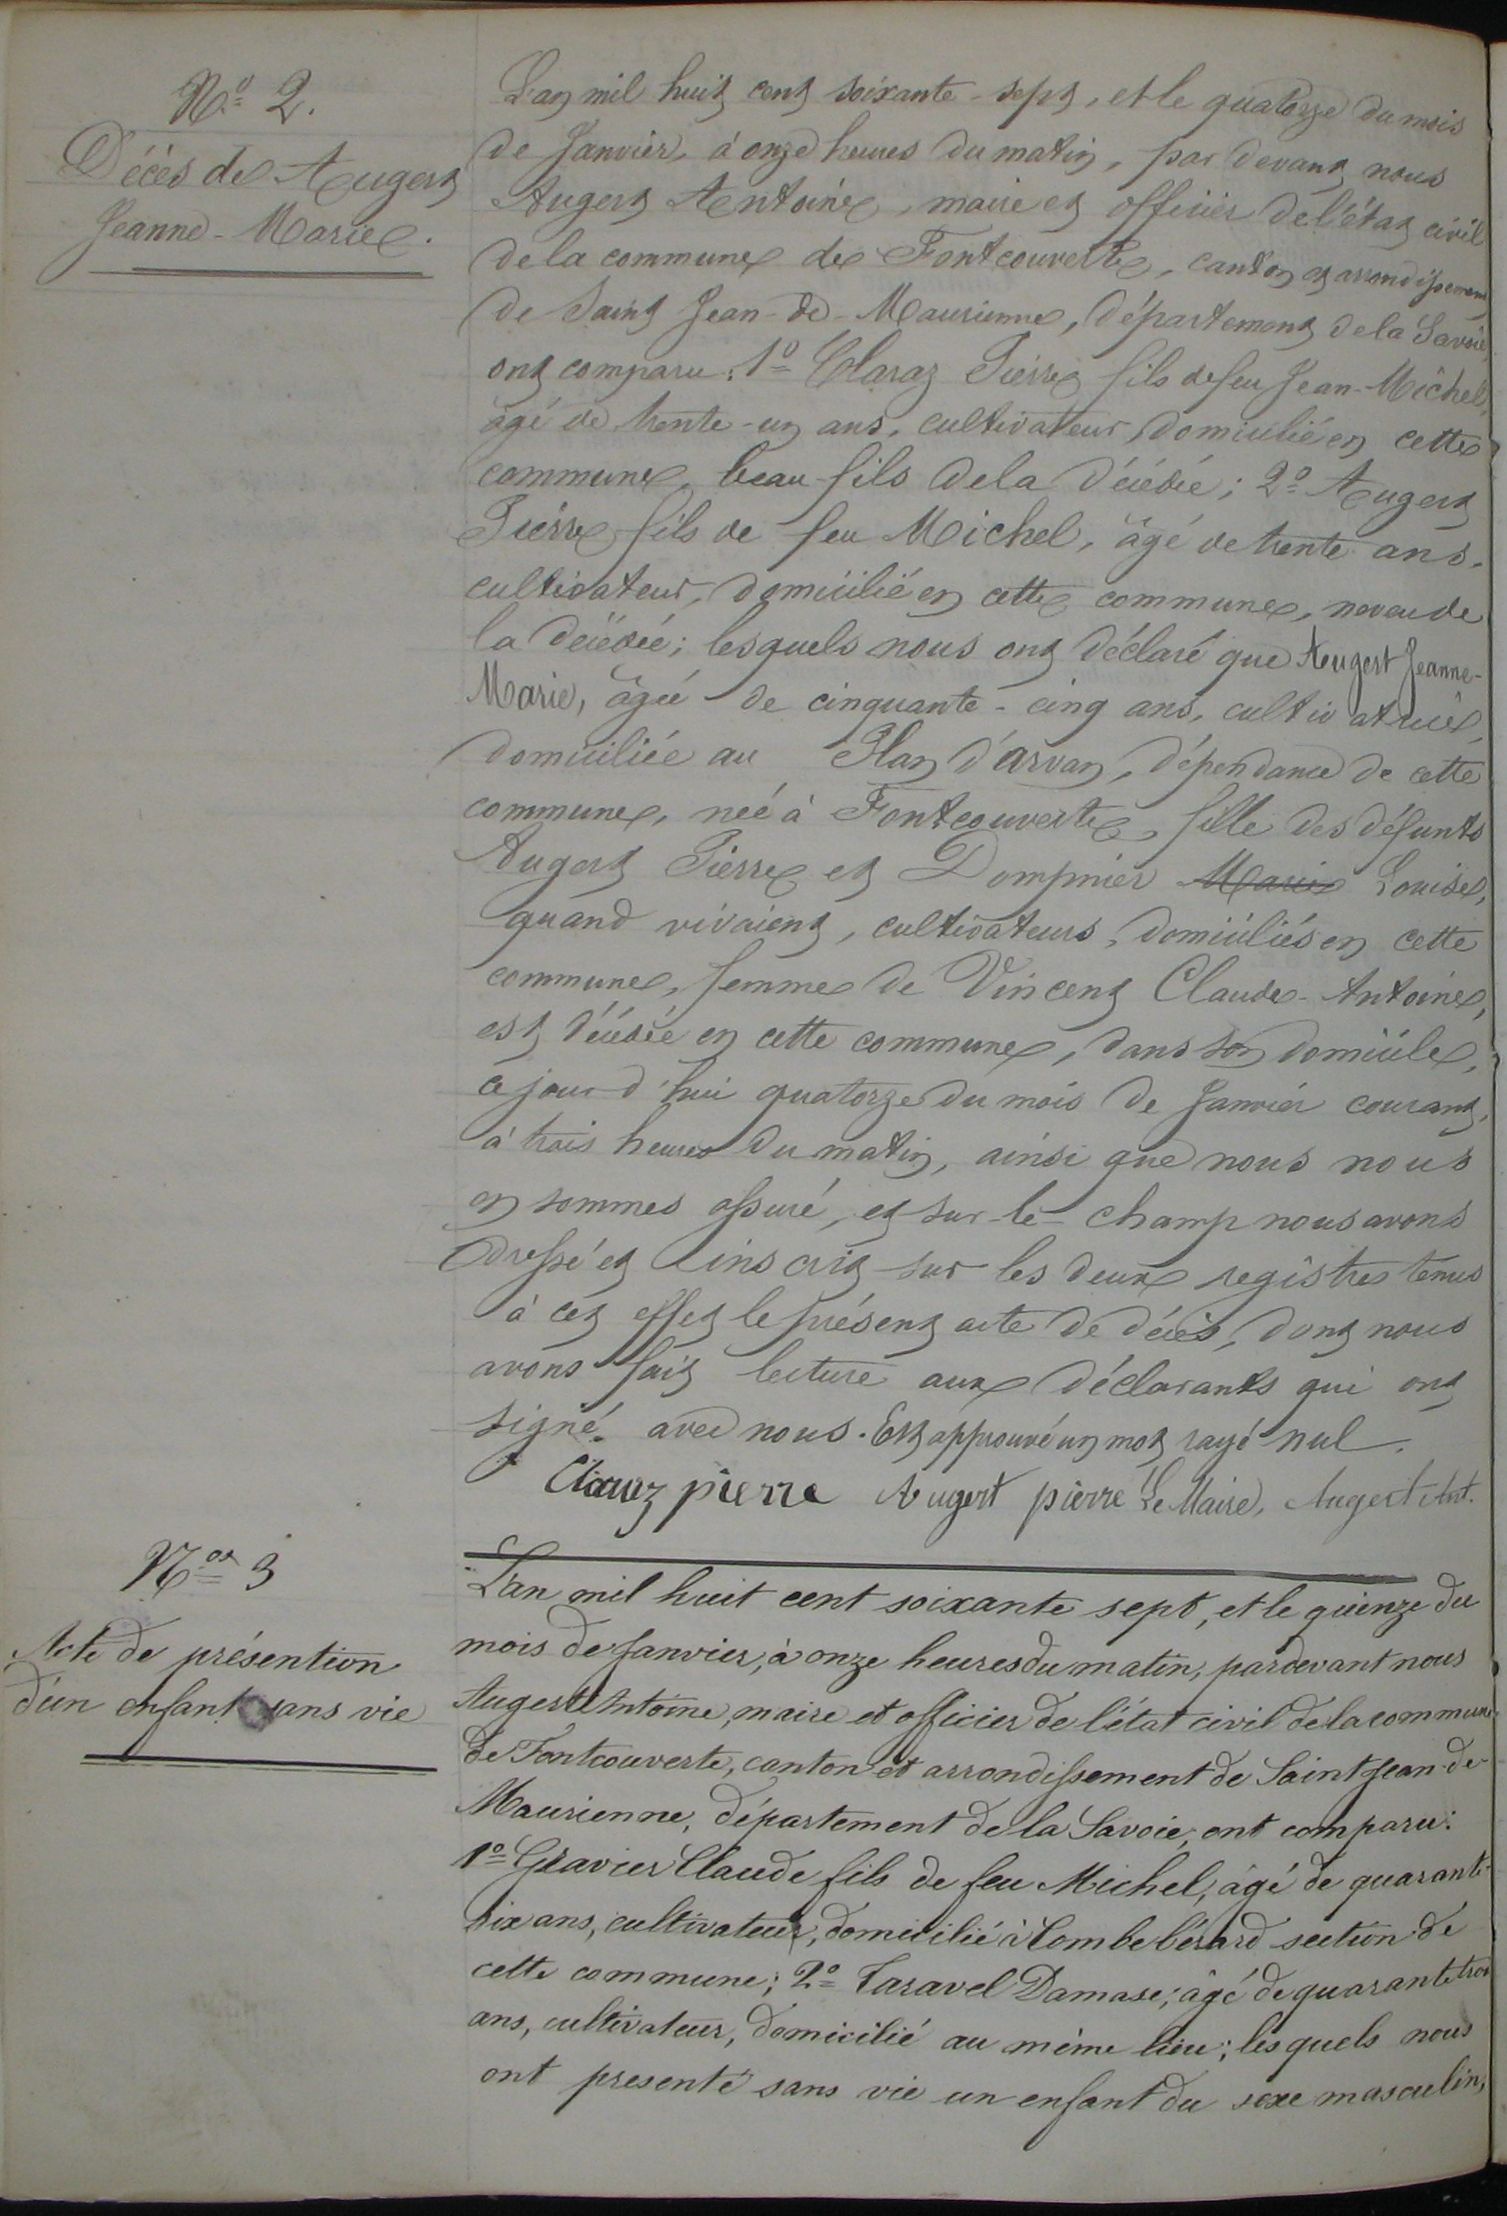 N.º 2.
Décès de Augert
Jeanne-Marie.
L'an mil huit cent soixante-sept, et le quatorze du mois
de Janvier, à onze heures du matin, par devant nous
Augert Antoine, maire et officier de l'état civil
de la commune de Fontcouverte, canton et arrondissement
de Saint Jean-de-Maurienne, département de la Savoie,
ont comparu: 1º Claraz Pierre fils de feu Jean-Michel,
âgé de trente-un ans, cultivateur domicilié en cette
commune, beau-fils de la décédée; 2º Augert
Pierre fils de feu Michel, âgé de trente ans,
cultivateur, domicilié en cette commune, neveu de
la décédée; lesquels nous ont déclaré que Augert Jeanne-
Marie, âgée de cinquante-cinq ans, cultivatrice,
domiciliée au Plan d'arvan, dépendance de cette
commune, née à Fontcouverte, fille des défunts
Augert Pierre et Dompnier Marie Louise,
quand vivaient, cultivateurs, domiciliés en cette
commune, femme de Vincent Claude-Antoine,
est décédée en cette commune, dans son domicile,
ce jour d'hui quatorze du mois de Janvier courant,
à trois heures du matin, ainsi que nous nous
en sommes assuré, et sur-le-champ nous avons
dressé et inscrit sur les deux registres tenus
à cet effet le présent acte de décès, dont nous
avons fait lecture aux déclarants qui ont
signé. avec nous. Est approuvé un mot rayé nul.
Claraz pierre Augert pierre Le Maire, Augert Ant.
N.os 3
Acte de présention
d'un enfant sans vie
L'an mil huit cent soixante sept, et le quinze du
mois de Janvier, à onze heures du matin, pardevant nous
Augert Antoine, maire et officier de l'état civil de la commune
de Fontcouverte, canton et arrondissement de Saint Jean-de-
Maurienne, département de la Savoie, ont comparu:
1º Gravier Claude fils de feu Michel, âgé de quarante-
six ans, cultivateur, domicilié à Combe bérard section de
cette commune; 2º Taravel Damase, âgé de quarante trois
ans, cultivateur, domicilié au même lieu; lesquels nous
ont presenté sans vie un enfant du sexe masculin,